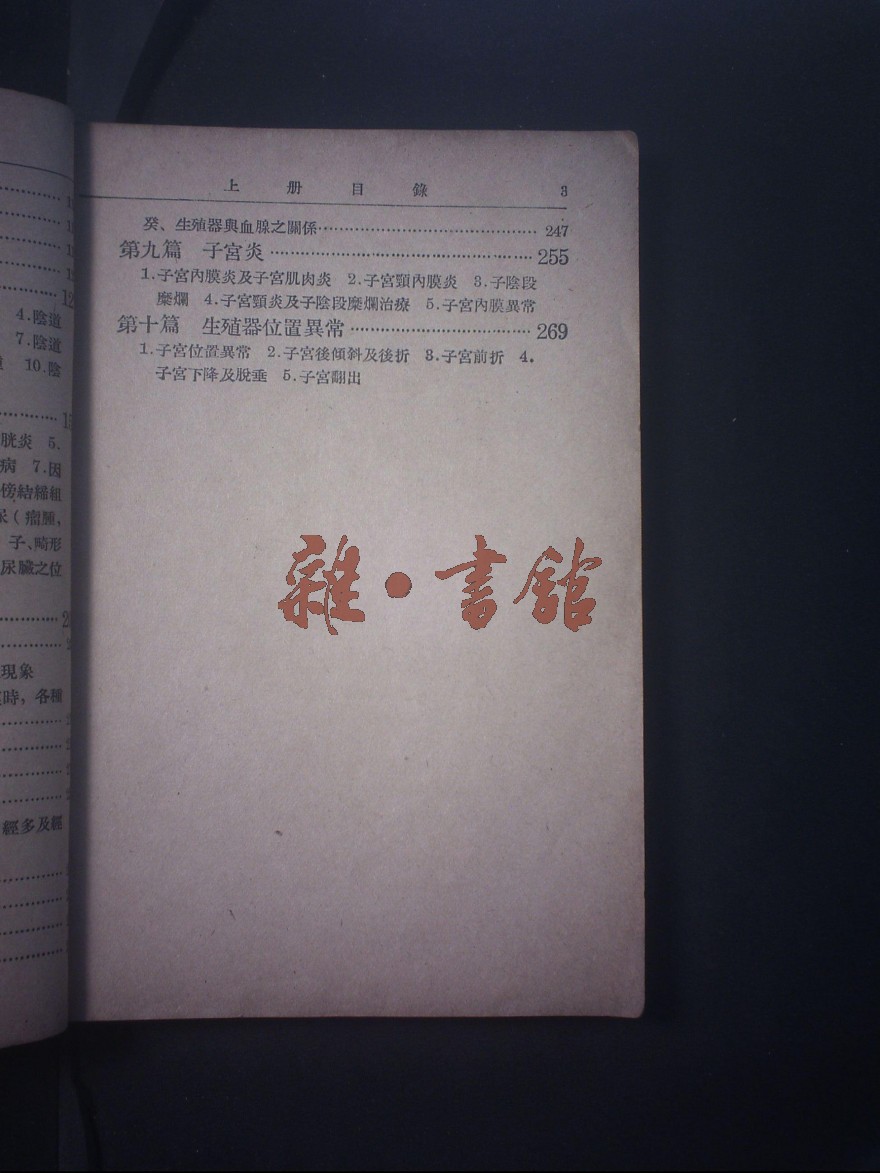 上册目錄 3
癸、生殖器與血腺之關係 247
第九篇 子宮炎 255
1.子宮內膜炎及子宮肌肉炎 2.子宮頸內膜炎 3.子陰段
糜爛 4.子宮頸炎及子陰段糜爛治療 5.子宮內膜異常
第十篇 生殖器位置異常 269
1.子宮位置異常 2.子宮後傾斜及後折 3.子宮前折 4.
子宮下降及脫垂 5.子宮翻出
4.陰道
7.陰道
10.陰
胱炎 5.
病 7.因
傍結締組
尿(瘤腫,
子、畸形
尿臟之位
現象
時,各種
經多及經
雜·書館